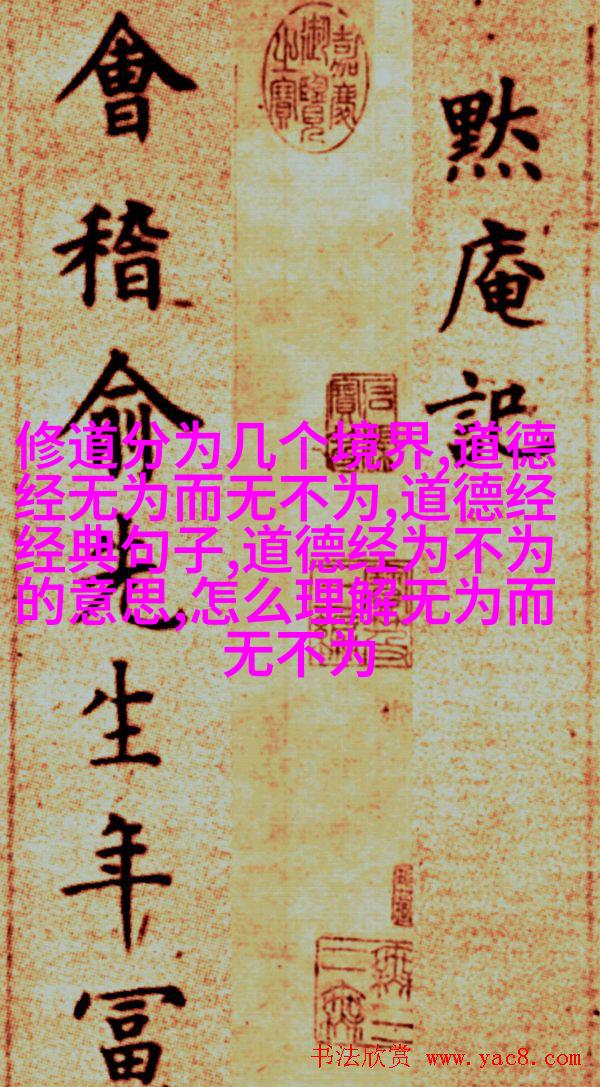 默庵記
會稽俞先生年富
嘉慶御覽之寶
修道分为几个境界,道德
经无为而无不为,道德经
经典句子,道德经为不为
的意思,怎么理解无为而
无不为
书法欣赏 www.yac8.com